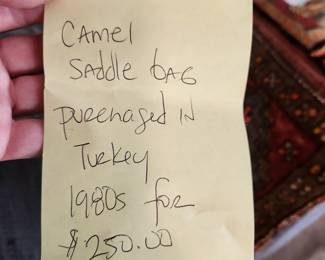 CAmel
SADDle bAG
purchased IN
Turkey
1980s for
$250.00